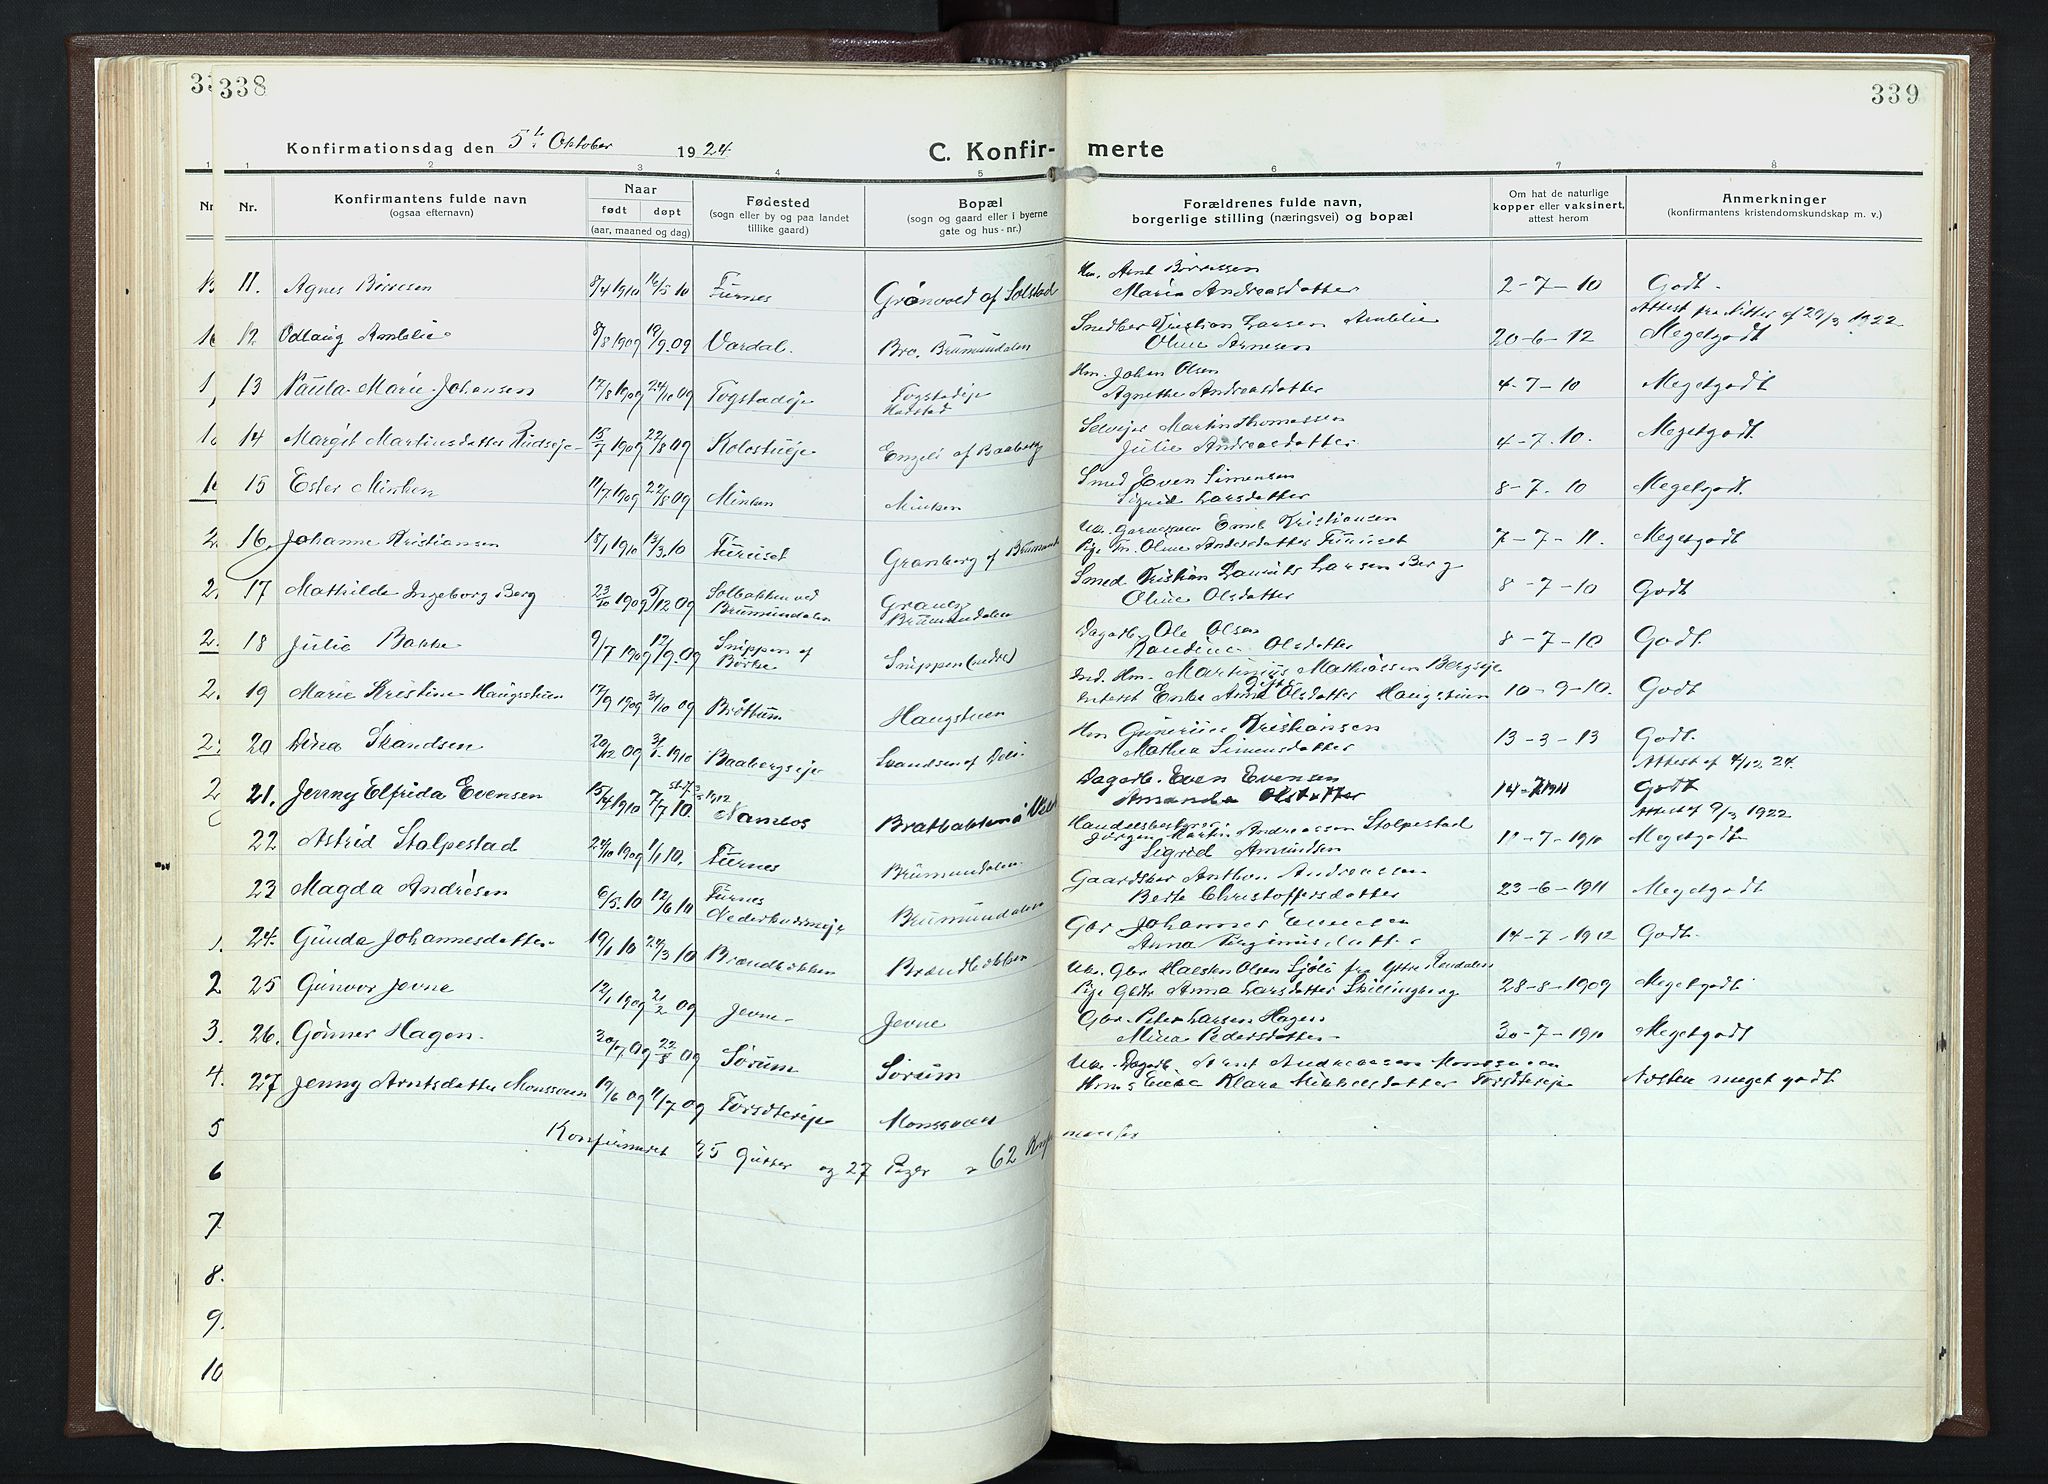 338
339
Konfirmationsdag den 5te Oktober 1924.
C. Konfir-
merte
1 2 3 4 5 6 7 8
Nr. Konfirmantens fulde navn (ogsaa efternavn)
Naar født døpt (aar, maaned og dag)
Fødested (sogn eller by og paa landet tillike gaard)
Bopæl (sogn og gaard eller i byerne gate og hus-nr.)
Forældrenes fulde navn, borgerlige stilling (næringsvei) og bopæl
Om hat de naturlige kopper eller vaksinert, attest herom
Anmerkninger (konfirmantens kristendomskundskap m. v.)
11. Agnes Børresen 8/4 1910 16/5 10 Furnes Grønvold af Solstad Hm. Arnt Børresen
Maria Andreasdatter 2-7-10 Godt.
Attest fra Nitter af 29/3 1922
12. Odlaug Amblie 8/8 1909 19/9.09 Vardal. Bro, Brumundalen Smedber Kristian Larsen Amblie
Oline Arnesen 20-6-12 Megetgodt
13 Paula Marie Johansen 17/8 1909 24/10 09 Togstadeje Togstadeje Hm. Johan Olsen
Agnethe Andreasdatter 4-7-10 Megetgodt
14 Margit Martinsdatter Rudseje 15/7 1909 22/8 09 Kolostueje Engeli af Baaberg Selvejer Martin Thomassen
Julie Andreasdatter 4-7.10. Megetgodt.
15 Ester Minken 11/7 1909 22/8 09 Minken Minken Smed Even Simensen
Sigrid Larsdatter 8-7.10 Megetgodt.
16. Johanne Kristiansen 15/1 1910 13/3.10 Furuset Granberg af Uk. Emil Kristiansen
Pige Oline Andersdatter Furuset 7-7-11. Megetgodt.
17 Mathilde Ingeborg Berg 23/10 1909 5/12 09 Solbakken ved Brumundalen Brumundalen Smed Kristian Laurits Larsen Berg
Oline Olsdatter 8-7-10 Godt
18 Julie Bakke 9/7 1909 12/9.09 Snippen af Børke Snippen (nedre) Dagarb. Ole Olsen
Randine Olsdatter 8-7-10 Godt.
19 Marie Kristine Haugstuen 17/9 1909 31/10 09 Brøttum Haugstuen Ind. Hm. Martinius Mathiassen Bergseje
Enke Anne Olsdatter Haugstuen 10-9-10. Godt
20 Dina Skandsen 20/12 09 1910 Baabergseje Hm Gunerius Kristiansen
Mathea Simensdatter 13-3-13 Godt.
Attest af 4/12 24.
21. Jenny Elfrida Evensen 15/4 1910 7/7 10. Namsos Bratbakken i Dagarb. Even Evensen
Amanda Olsdatter 14-7 1911 Godt
Attest af 9/3 1922
22 Astrid Stolpestad 24/10 1909 1/1 10. Furnes Brumundalen Handelsbestyrer
Jørgen Martin Andreassen Stolpestad
Sigrid Amundsen 11-7-1910 Megetgodt
23 Magda Andrésen 6/5.10 12/6 10 Furnes Brumundalen Gaardsker Anthon Andreassen
Berte Christoffersdatter 23-6-1911 Megetgodt
24. Gunda Johannesdatter 19/1 10 24/3 10 Brændbakken Brændbakken Gbr Johannes Evensen
Anna 14-7-1912 Godt.
25 Gunvor Jevne 12/1 1909 21/2 09 Jevne Jevne Uk. Gbr Halsten Olsen Sjøli fra Yttre Rendalen
Pige Gdtr Anna Larsdatter Skillingberg 28-8-1909 Megetgodt.
26. Gønner Hagen. 20/7 09 22/8 09 Sørum Sørum Gbr. Peter Larsen Hagen
Mina Pedersdatter 30-7-1910 Megetgodt
27 Jenny Arntsdatter Monssveen 19/6 09 11/7 09 Torsdtereje Monssveen Uk. Dagarb. Arnt Andreassen Monssveen
Enke Klara Mikkelsdatter Torsdtereje Næsten meget godt
Konfirmeret 35 Gutter og 27 Piger = 62 Konfirmanter
1. 2 3. 4. 5 6 7. 8. 9. 10